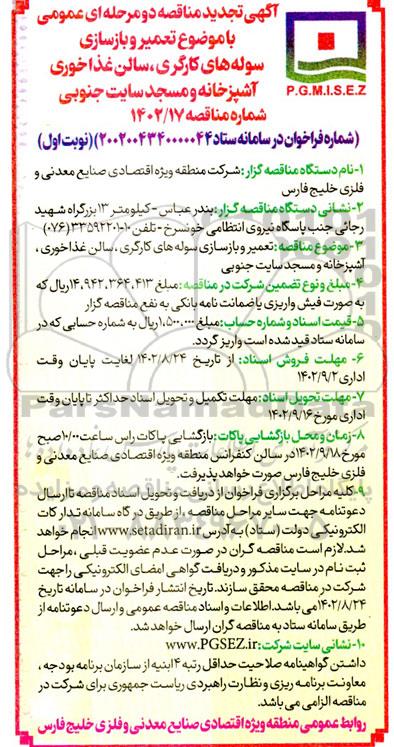 آگهی تجدید مناقصه دو مرحله ای عمومی
با موضوع تعمیر و بازسازی
سوله های کارگری ، سالن غذاخوری
آشپزخانه و مسجد سایت جنوبی
شماره مناقصه ۱۴۰۲/۱۷
P.G.M.I.S.E.Z
(شماره فراخوان در سامانه ستاد ۲۰۰۲۰۰۴۳۴۰۰۰۰۰۴۴) (نوبت اول)
۱- نام دستگاه مناقصه گزار: شرکت منطقه ویژه اقتصادی صنایع معدنی و
فلزی خلیج فارس
۲- نشانی دستگاه مناقصه گزار: بندر عباس - کیلومتر ۱۳ بزرگراه شهید
رجائی جنب پاسگاه نیروی انتظامی خونسرخ - تلفن ۱۰-۳۳۵۹۲۲۰۱ (۰۷۶)
۳- موضوع مناقصه: تعمیر و بازسازی سوله های کارگری ، سالن غذاخوری ،
آشپزخانه و مسجد سایت جنوبی
۴- مبلغ و نوع تضمین شرکت در مناقصه: مبلغ ۱۴،۹۴۲،۳۶۴،۴۱۳ ریال که
به صورت فیش واریزی یا ضمانت نامه بانکی به نفع مناقصه گزار
۵- قیمت اسناد و شماره حساب: مبلغ ۱،۵۰۰،۰۰۰ ریال به شماره حسابی که در
سامانه ستاد قید شده است واریز گردد.
۶- مهلت فروش اسناد: از تاریخ ۱۴۰۲/۸/۲۴ لغایت پایان وقت
اداری ۱۴۰۲/۹/۲
۷- مهلت تحویل اسناد: مهلت تکمیل و تحویل اسناد حداکثر تا پایان وقت
اداری مورخ ۱۴۰۲/۹/۱۶
۸- زمان و محل بازگشایی پاکات: بازگشایی پاکات راس ساعت ۱۰/۰۰ صبح
مورخ ۱۴۰۲/۹/۱۸ در سالن کنفرانس منطقه ویژه اقتصادی صنایع معدنی و
فلزی خلیج فارس صورت خواهد پذیرفت.
۹- کلیه مراحل برگزاری فراخوان از دریافت و تحویل اسناد مناقصه تا ارسال
دعوتنامه جهت سایر مراحل مناقصه ، از طریق درگاه سامانه تدارکات
الکترونیکی دولت (ستاد) به آدرس www.setadiran.ir انجام خواهد
شد. لازم است مناقصه گران در صورت عدم عضویت قبلی ، مراحل
ثبت نام در سایت مذکور و دریافت گواهی امضای الکترونیکی را جهت
شرکت در مناقصه محقق سازند. تاریخ انتشار فراخوان در سامانه تاریخ
۱۴۰۲/۸/۲۴ می باشد. اطلاعات و اسناد مناقصه عمومی و ارسال دعوتنامه از
طریق سامانه ستاد به مناقصه گران ارسال خواهد شد.
۱۰- نشانی سایت شرکت: www.PGSEZ.ir
داشتن گواهینامه صلاحیت حداقل رتبه ۴ ابنیه از سازمان برنامه بودجه ،
معاونت برنامه ریزی و نظارت راهبردی ریاست جمهوری برای شرکت در
مناقصه الزامی می باشد.
روابط عمومی منطقه ویژه اقتصادی صنایع معدنی و فلزی خلیج فارس